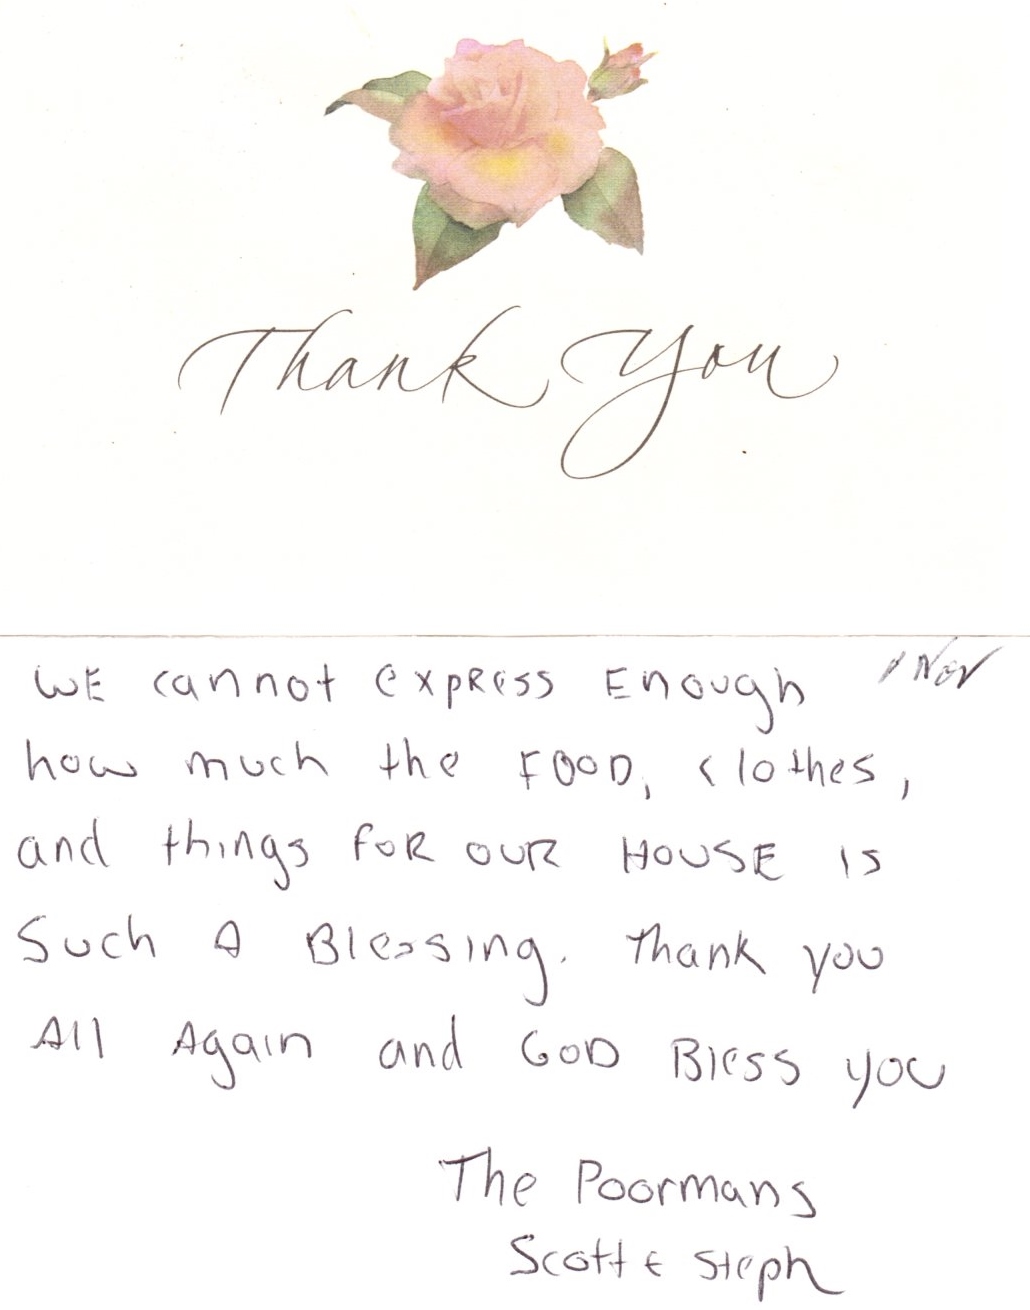 Thank You
1 Nov
WE cannot express Enough
how much the FOOD, clothes,
and things foR OUR HOUSE is
Such A Blessing. Thank you
All Again and GOD Bless you
The Poormans
Scott & Steph